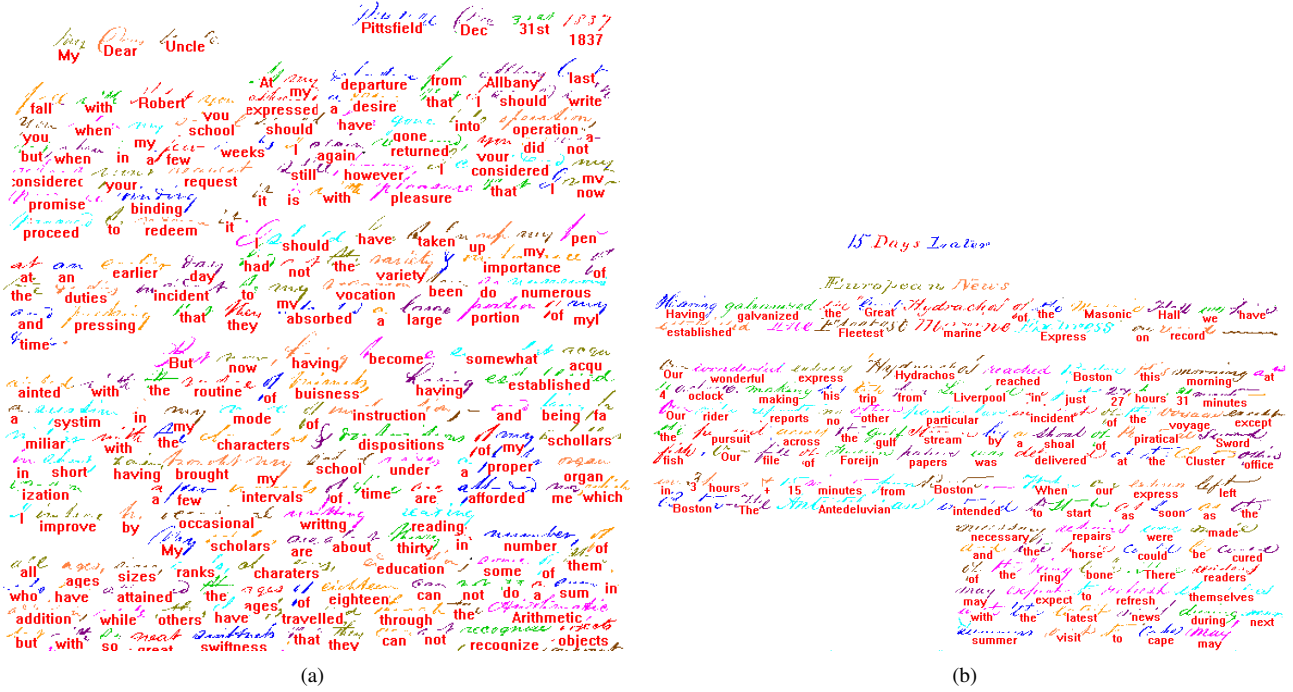 Pittsfield Dec 31st 1837
My Dear Uncle
At my departure from Allbany last
fall with Robert you expressed a desire that I should write
you when my school should have gone into operation,
but when in a few weeks I again returned your did not
considered your request still however, I considered my
promise binding it is with pleasure that I now
proceed to redeem it
I should have taken up my pen
at an earlier day had not the variety importance of
the duties incident to my vocation been so numerous
and pressing that they absorbed a large portion of myl
time
But now having become somewhat acqu
ainted with the routine of buisness having established
a systim in my mode of instruction - and being fa
miliar with the characters dispositions of my schollars
in short having brought my school under a proper organ
ization a few intervals of time are afforded me which
I improve by occasional writtng reading
My scholars are about thirty in number, of
all ages, sizes, ranks, charaters, education, some of them
who have attained the ages of eighteen can not do a sum in
addition, while others have travelled through the Arithmetic
but with so great swiftness that they can not recognize objects
(a)
15 Days Later
European News
Having galvanized the Great Hydrachos of the Masonic Hall we have
established Fleetest marine Express on record
Our wonderful express Hydrachos reached Boston this morning at
4 oclock making his trip from Liverpool in just 27 hours 31 minutes
Our rider reports no other particular incident of the voyage except
the pursuit across the gulf Stream by a shoal of piratical Sword
fish, Our file of Foreijn papers was delivered at the Cluster office
in 3 hours + 15 minutes from Boston When our express left
Boston The Antedeluvian intended to start as soon as the
necessary repairs were made
and the horse could be cured
of the ring bone There readers
may expect to refresh themselves
with the latest news during next
summer visit to cape may
(b)